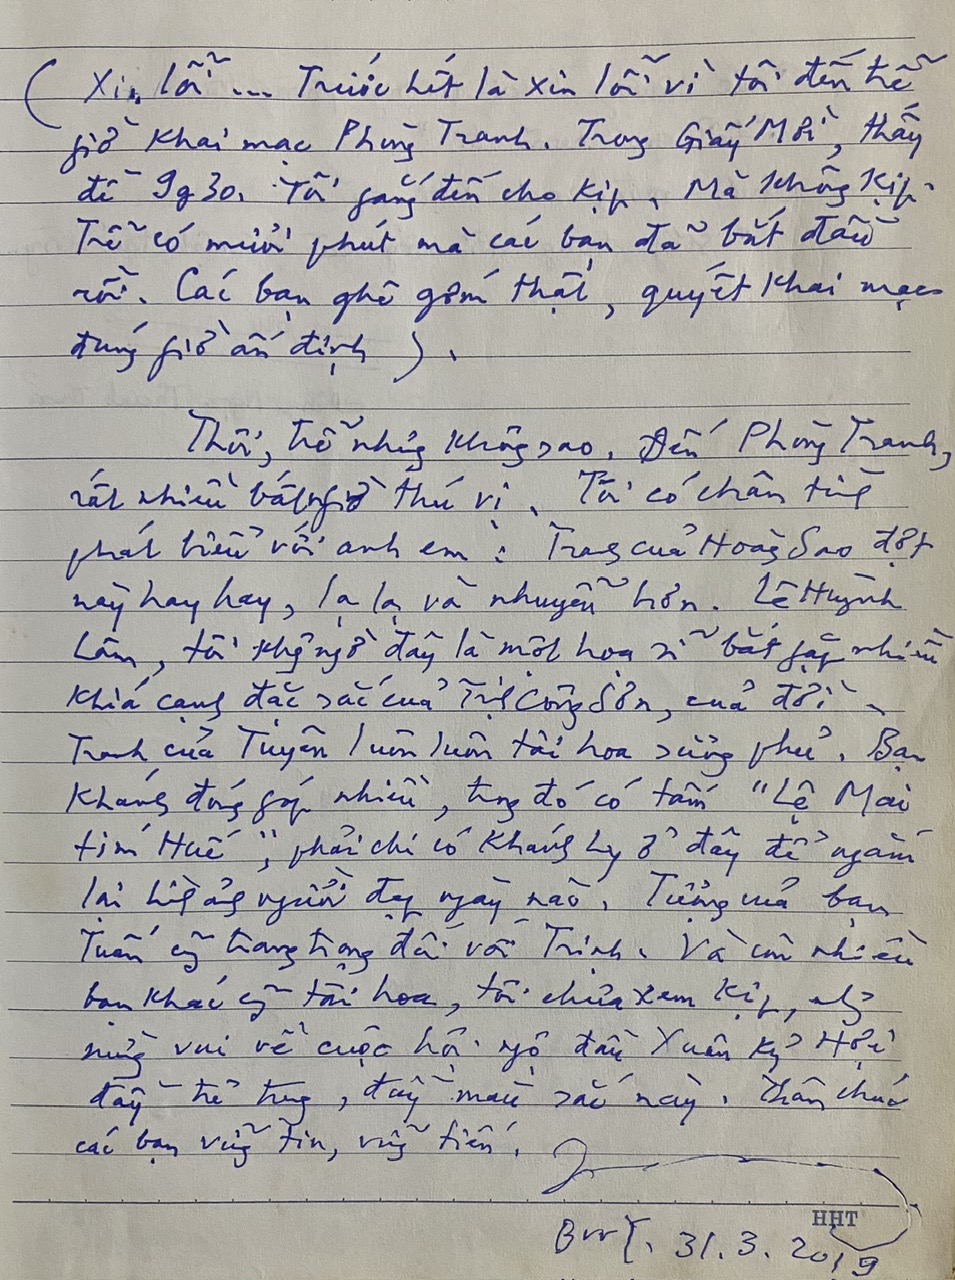 (Xin lỗi ... Trước hết là xin lỗi vì tôi đến trễ
giờ khai mạc Phòng Tranh. Trong Giấy Mời, thấy
đề 9g30. Tôi gắng đến cho kịp. Mà không kịp.
Trễ có mười phút mà các bạn đã bắt đầu
rồi. Các bạn ghê gớm thật, quyết khai mạc
đúng giờ ấn định).
Thôi, trễ nhưng không sao. Đến Phòng Tranh,
rất nhiều bất ngờ thú vị. Tôi có chân tình
phát biểu với anh em: Tranh của Hoàng Sao đợt
này hay hay, lạ lạ và nhuyễn hơn. Lê Huỳnh
Lâm, tôi không ngờ đây là một họa sĩ bắt gặp nhiều
khía cạnh đặc sắc của Trịnh Công Sơn, của đời.
Tranh của Tuyên luôn luôn tài hoa sừng phủ. Bạn
Khánh đóng góp nhiều, trong đó có tấm "Lệ Mai
tím Huế", phải chi có Khánh Ly ở đây để ngắm
lại hình ảnh người đẹp ngày nào. Tượng của bạn
Tuấn cũng trang trọng đối với Trịnh. Và còn nhiều
bạn khác cũng tài hoa, tôi chưa xem kịp, nhưng
mừng vui về cuộc hội ngộ đầu Xuân Kỷ Hợi
đầy trẻ trung, đầy màu sắc này. Thân chúc
các bạn vững tin, vững tiến.
HHT
31.3.2019